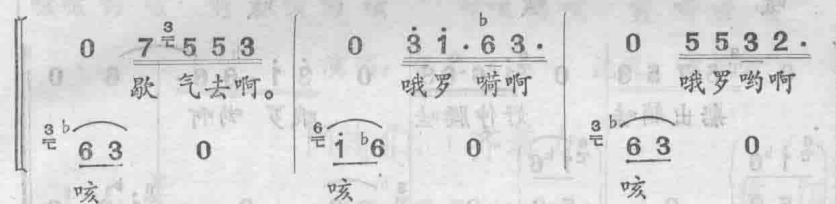 0 7 3 5 5 3 0 3 1 · b6 3 · 0 5 5 3 2 ·
歇 气去啊。 哦罗 嗬啊 哦罗哟啊
3 b6 3 0 6 1 b6 0 3 b6 3 0
咳 咳 咳